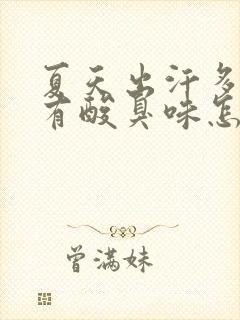 夏天出汗多
有酸臭味怎
曾满妹